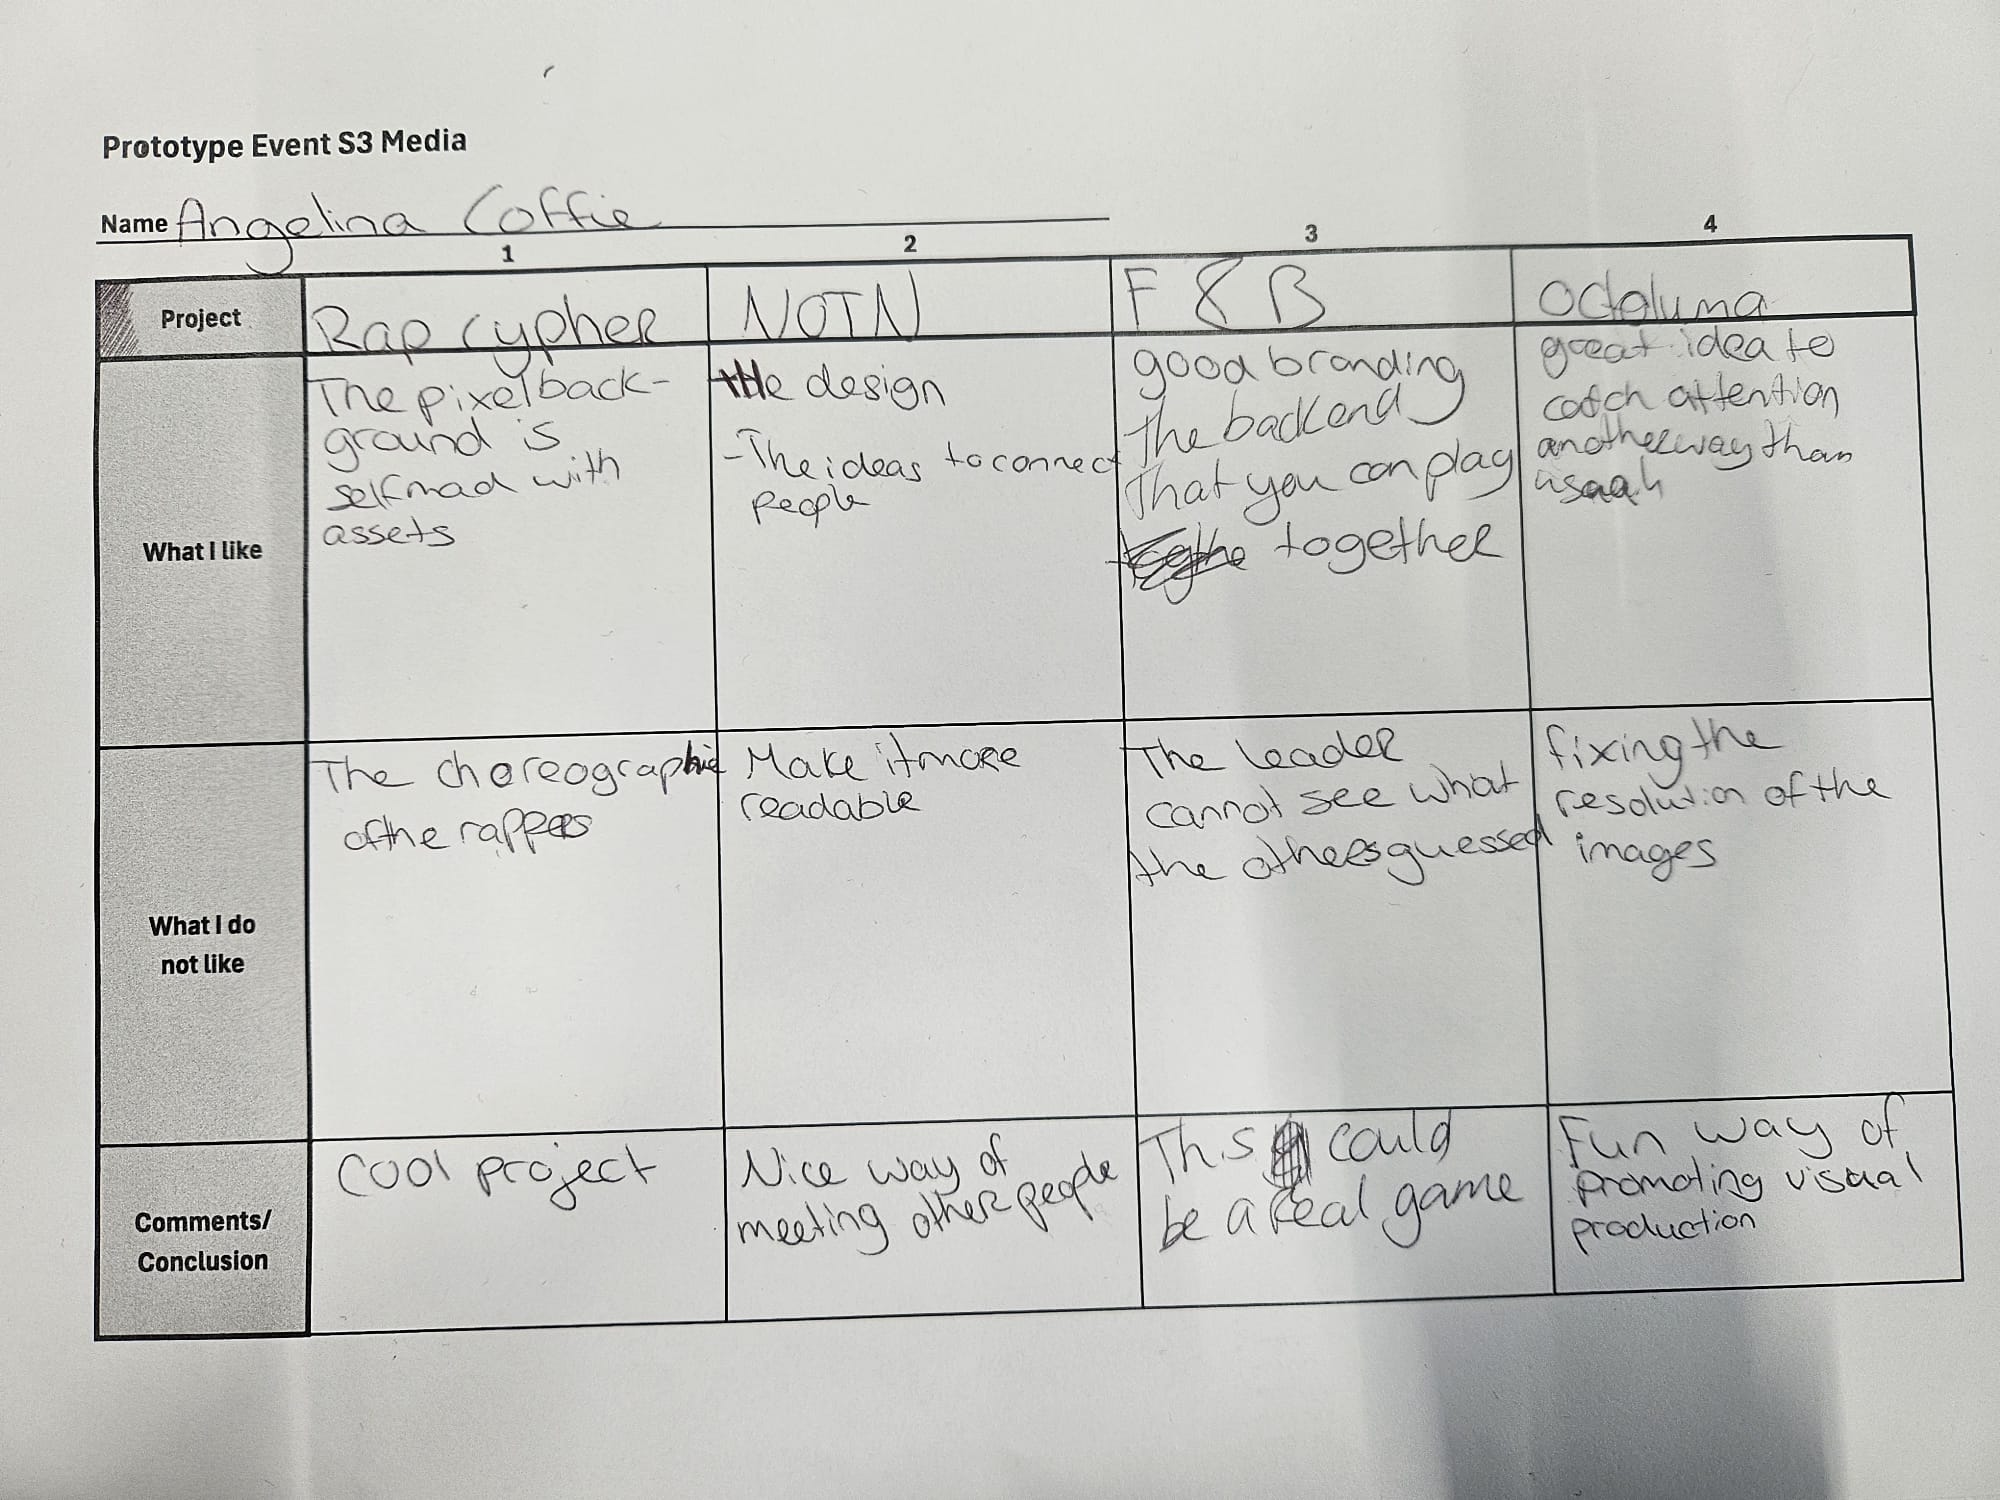 Prototype Event S3 Media
Name Angelina Coffie
1 2 3 4
Project
Rap cypher
NOTN
F & B
Odaluma
What I like
The pixel back-
ground is
selfmad with
assets
the design
-The ideas to connect
people
good branding
the backend
That you can play
together
great idea to
catch attention
another way than
What I do
not like
The choreographie
of the rappers
Make it more
readable
The leader
cannot see what
the others guessed
fixing the
resolution of the
images
Comments/
Conclusion
Cool project
Nice way of
meeting other people
This could
be a real game
Fun way of
promoting visual
production